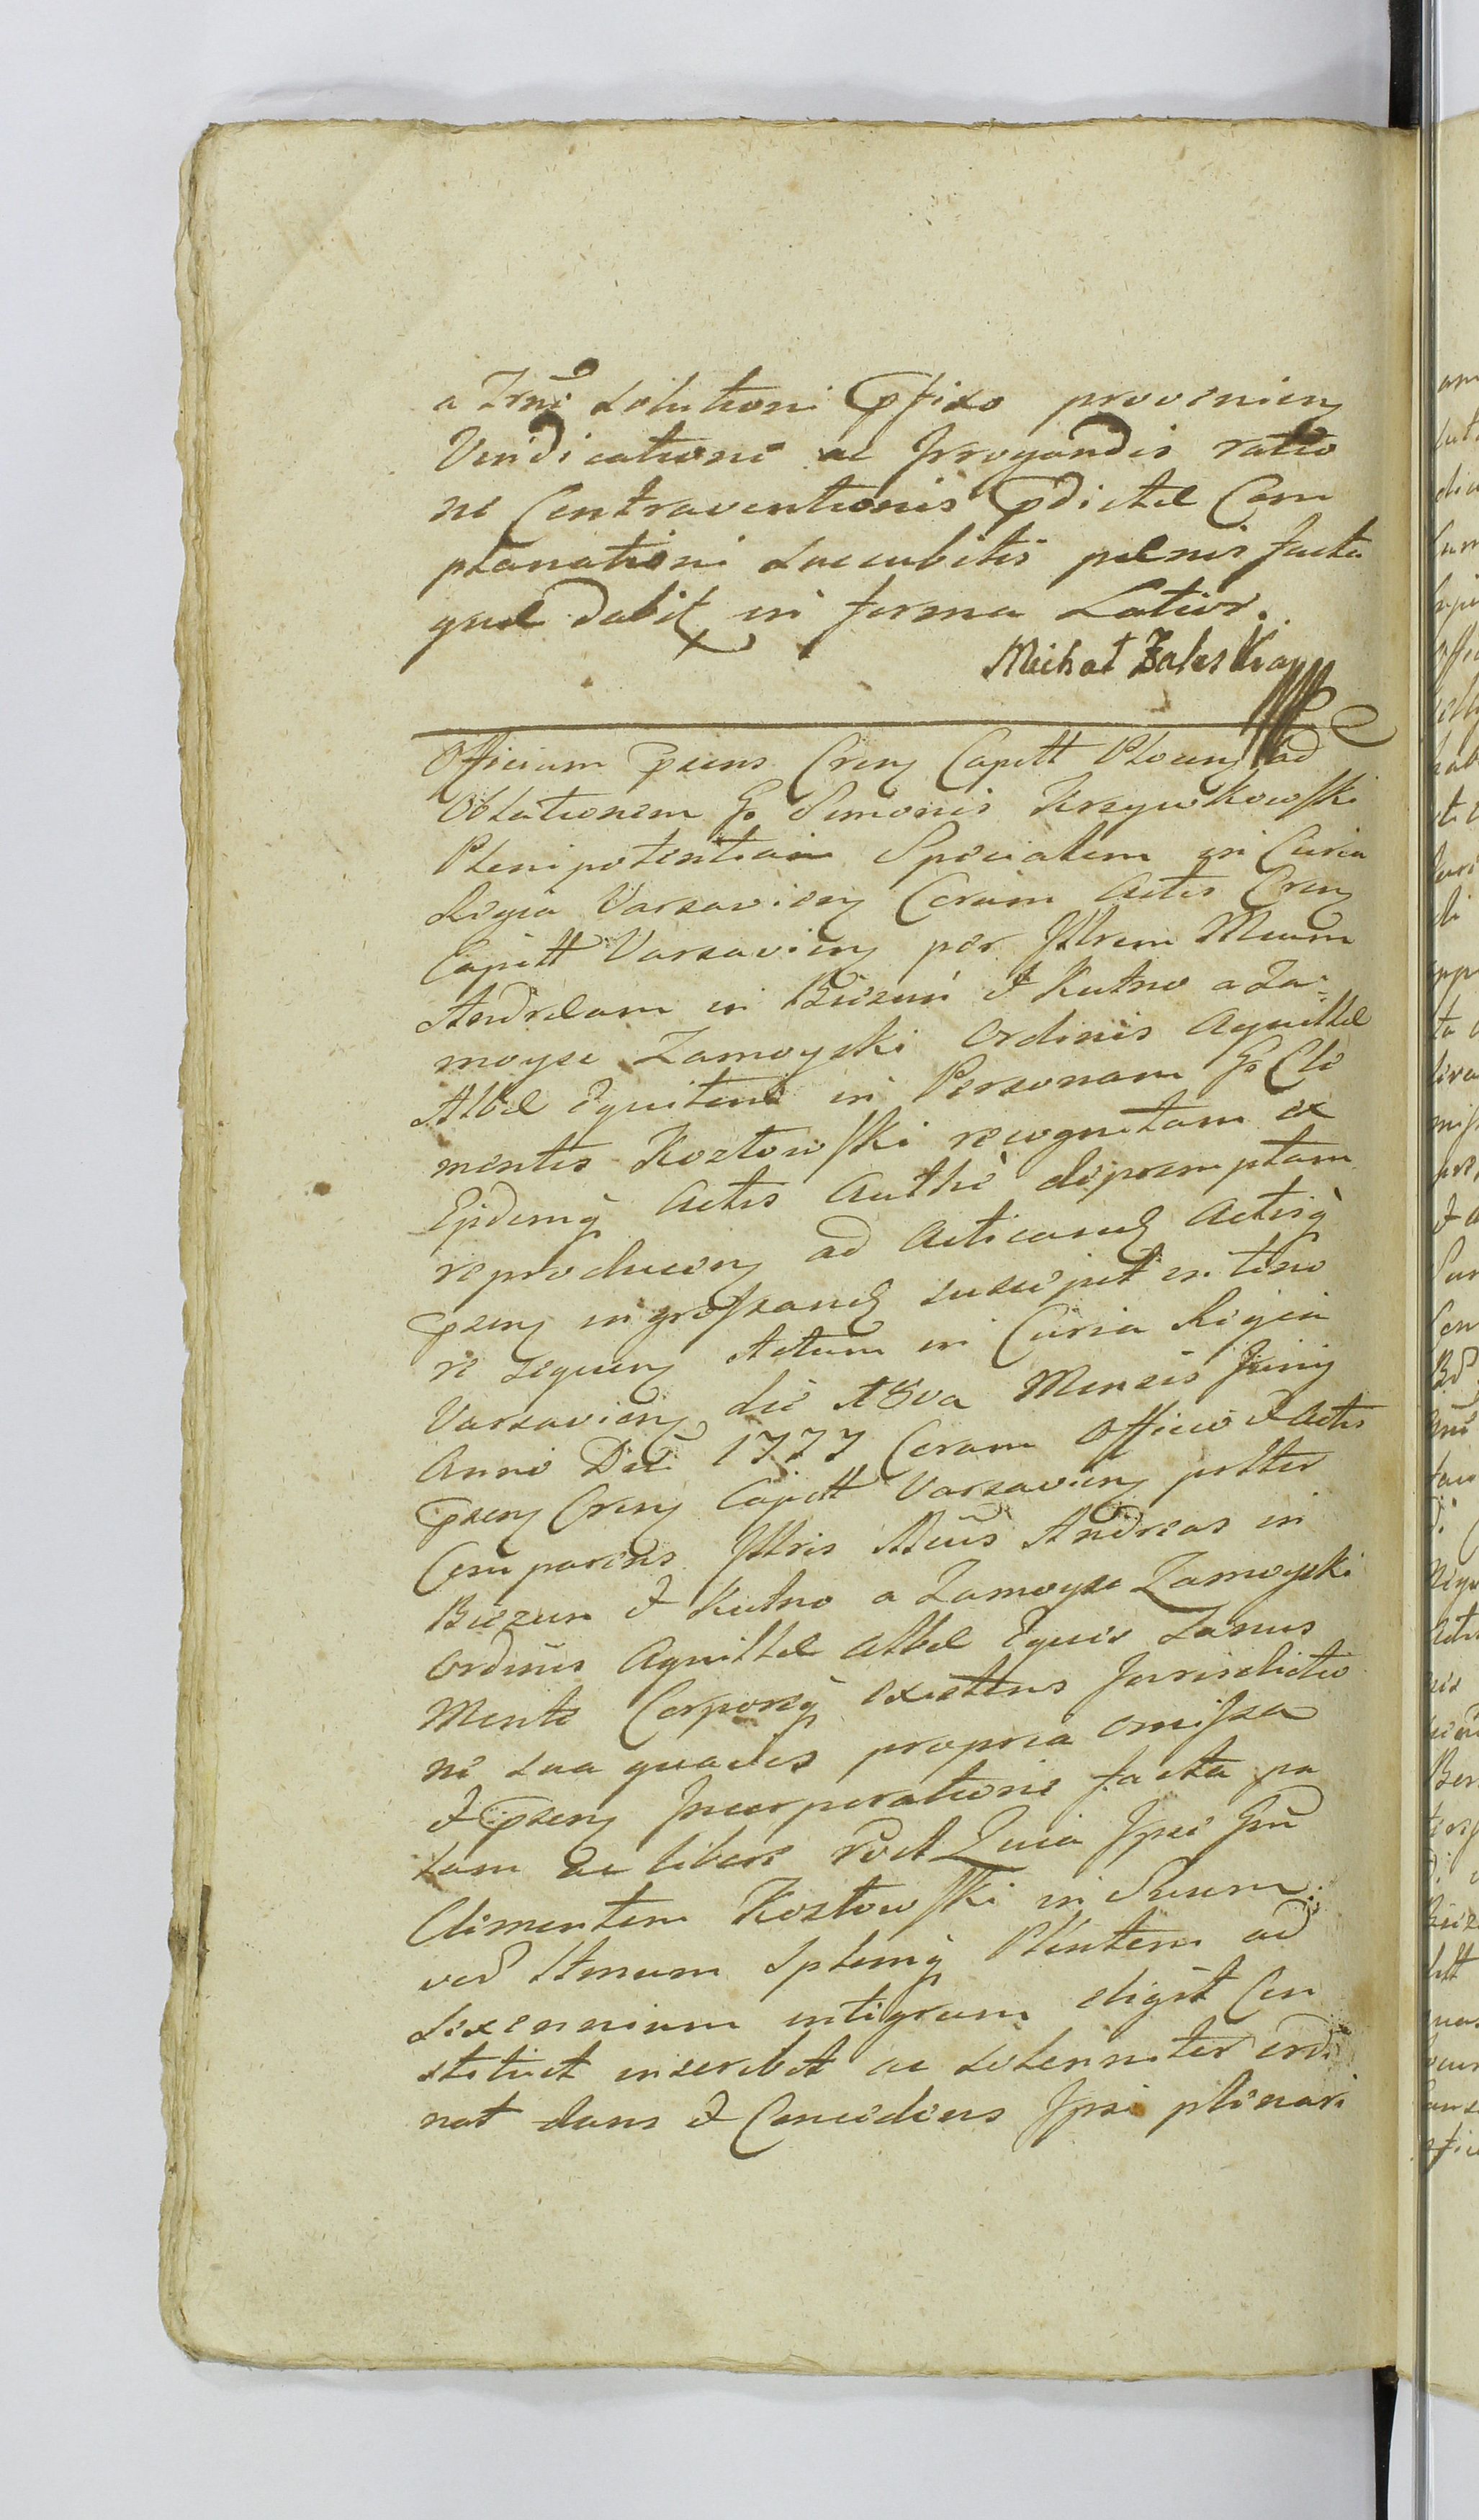 a Trno Solutioni pfixo provenien
Vindicatione ac Irrogandis ratio
ne Contraventionis pdictæ Com
planationi succubitis pænis facta
quæ dabit in forma Latior.
Michał Zaleski
Officium præns Cren Capitt Plocen ad
Oblationem G. Simonis Krzywkowski
Plenipotentiam Specialem in Curia
Regia Varsavien Coram Actis Cren
Capitt Varsavien per Illrem Mcum
Andream in Biezuń et Kutno a Za=
moysc Zamoyski Ordinis Aquillæ
Albæ Equitem in Personam G. Cle
mentis Kozłowski recognitam ex
Eisdemq Actis Authe depromptam
reproducen ad Acticand Actisq
præn ingrossand suscipit in teno
re sequen Actum in Curia Regia
Varsavien die Mensis Junij
Anno Dni 1777 Coram Officio et Actis
præn Cren Capitt Varsavien psltter
Comparens Illris Mcus Andreas in
Biezun et Kutno a Zamoysc Zamoyski
Ordinis Aquillæ Albæ Eques Sanus
Mente Corporeq existens Jurisdictio
ne sua quavis propria omissa
et præn Incorporatione facta pa
lam ac libere rdct Quia Ipse Gnu
Clementem Kozłowski in Suum
verum Splemq Plentem ad
Sexennium integrum eligit Con
stituit inscribit ac solenniter ordi
nat dans et Concedens Ipsi plenari